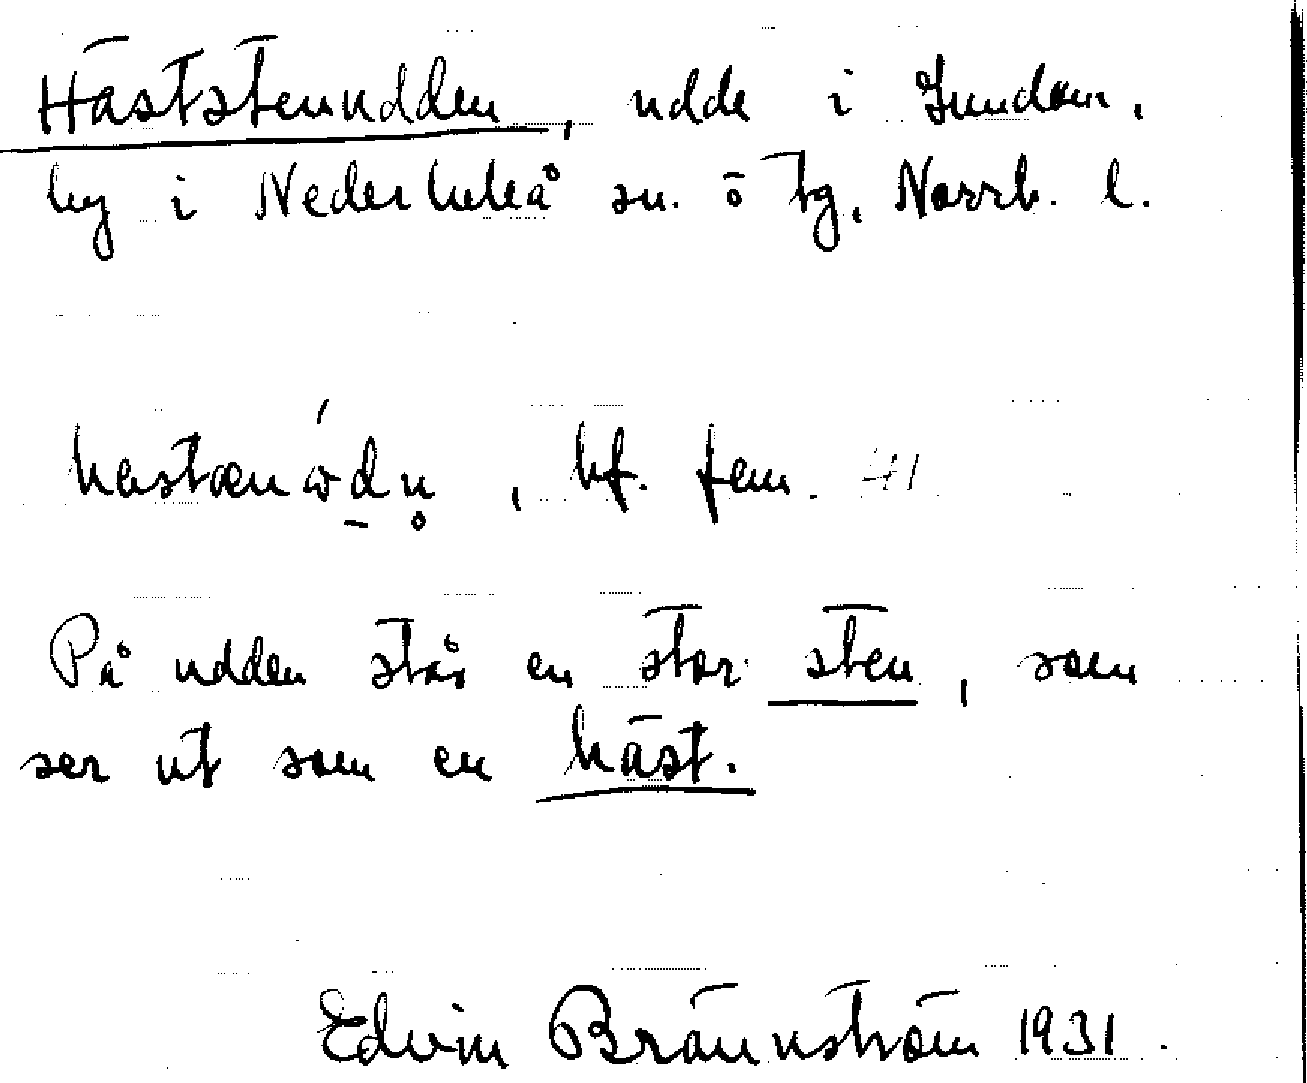 Häststenudden, udde i Gundom.
by i Nederluleå sn. ö tg. Norrb. l.
bf. fem.
På udden står en stor sten, som
ser ut som en häst.
Edvin Brännström 1931.